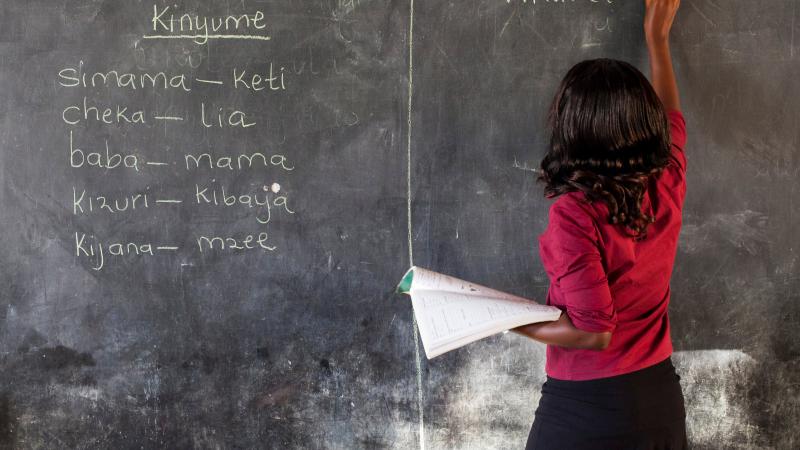 Kinyume
Simama – Keti
cheka – lia
baba – mama
Kizuri – Kibaya
Kijana – mzee